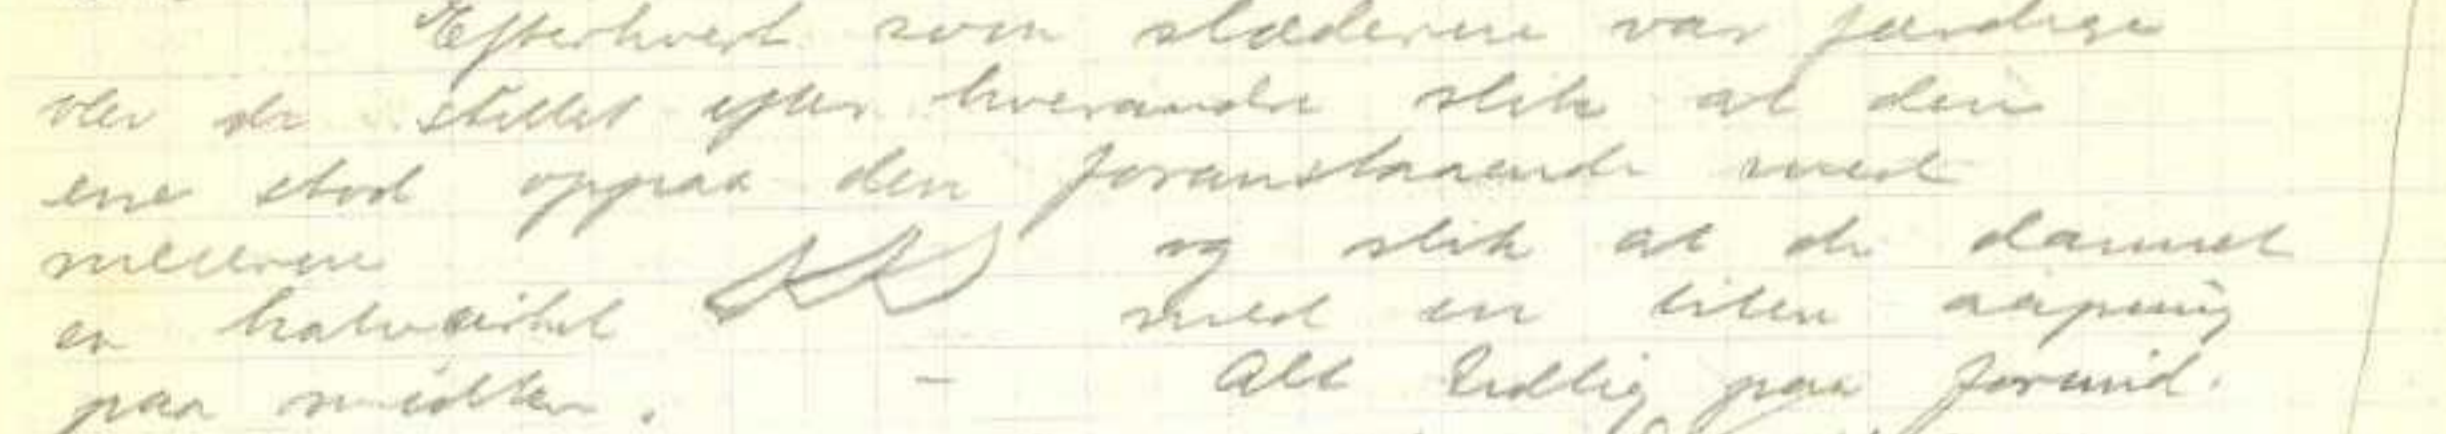 Efterhvert som slæderne var færdige
blev de stillet efter hverandre slik at den
ene stod oppaa den foranstaaende med
meierne og slik at de dannet
en halvcirkel med en liten aapning
paa midten. - Alt tidlig paa formid.